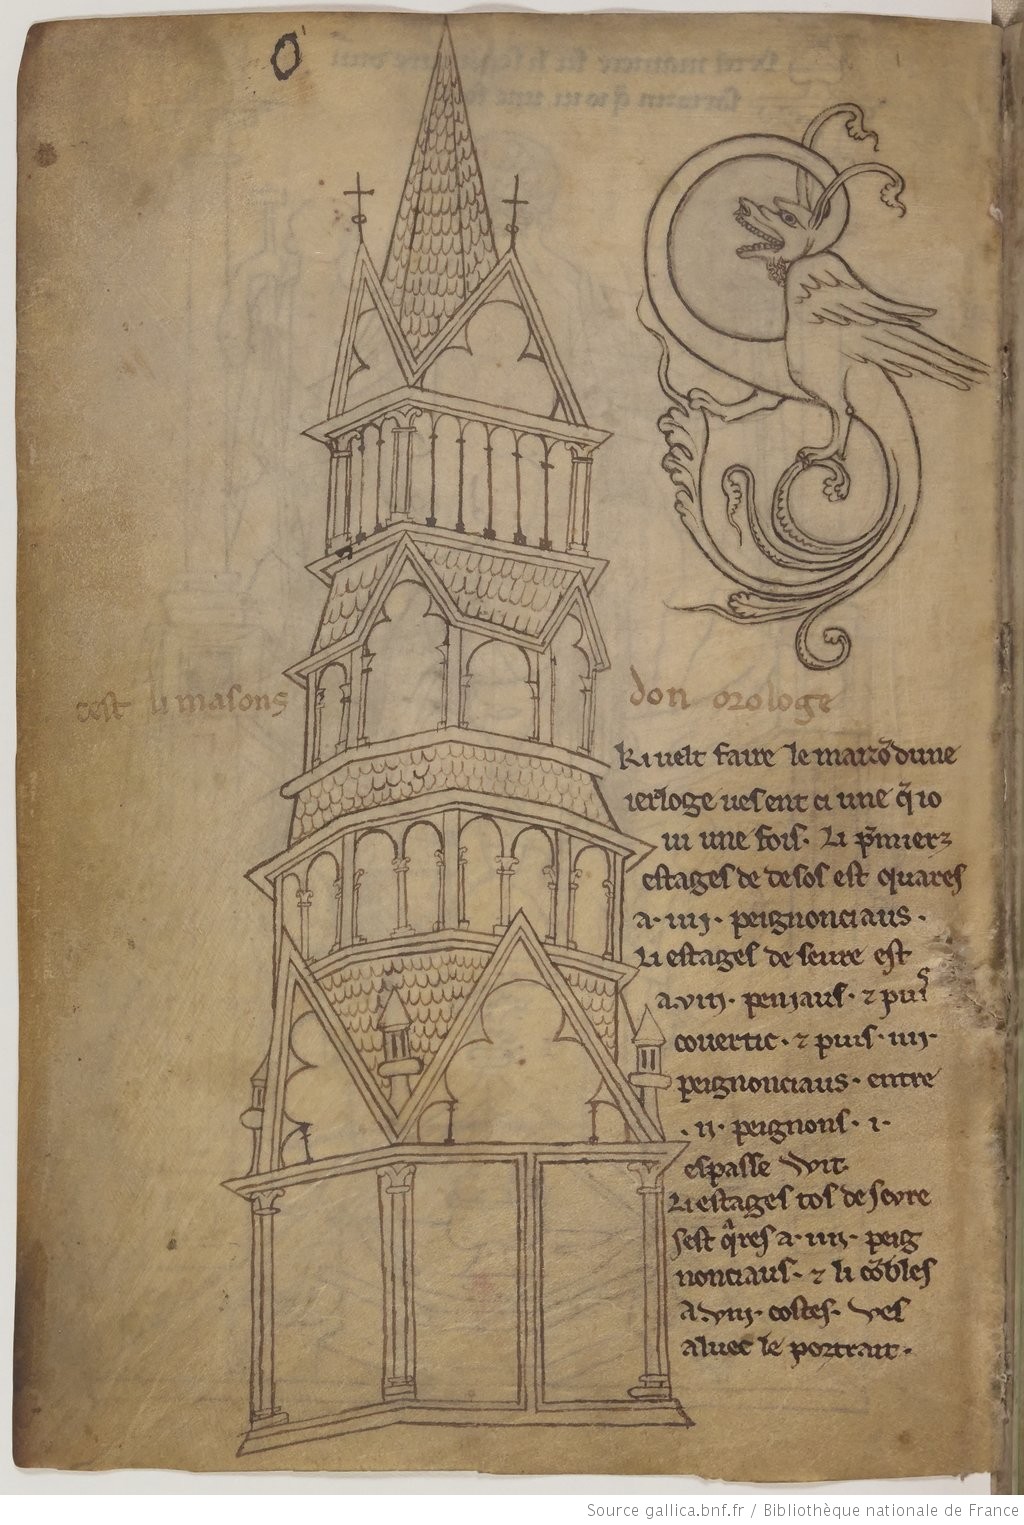 o
cest li masons don orologe
Ki velt faire le maizō dune
ierloge ves ent ci une q̄ io
vi une fois. Li p̄mierz
estages de desos est quares
a .iiij. peignonciaus.
Li estages deseure est
a .viij. peniaus. ⁊ puis
covertic. ⁊ puis .iiij.
peignonciaus. entre
.ij. peignons .i.
espasse wit.
Li estages tos desevre
sest q̄res a .iiij. peig
nonciaus. ⁊ li cōbles
a .viij. costes. ves
aluec le portrait.
Source gallica.bnf.fr / Bibliothèque nationale de France